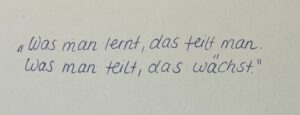 „Was man lernt, das teilt man.
Was man teilt, das wächst."